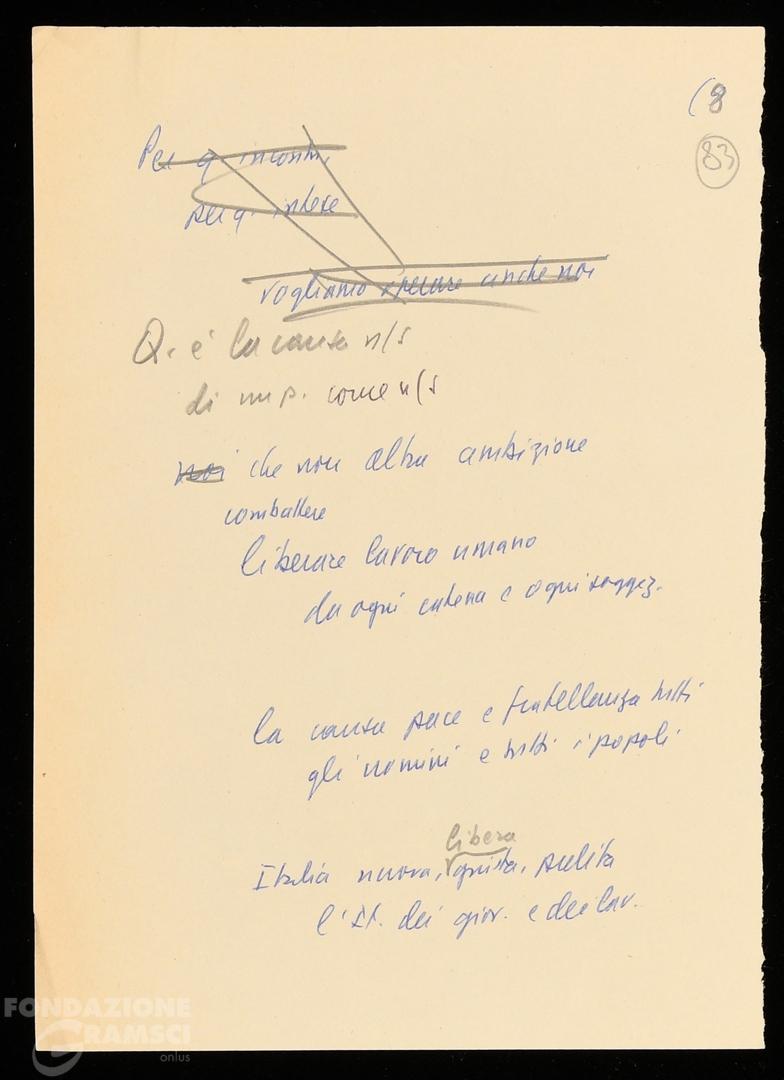 (8
83
Per q. incontri,
per q. intese
vogliamo operare anche noi
Q. è la causa n/s
di un p. come n/s
noi che non altra ambizione
combattere
liberare lavoro umano
da ogni catena e ogni soggez.
la causa pace e fratellanza tutti
gli uomini e tutti i popoli
libera
Italia nuova, giusta, pulita
l'It. dei giov. e dei lav.
FONDAZIONE
GRAMSCI
onlus